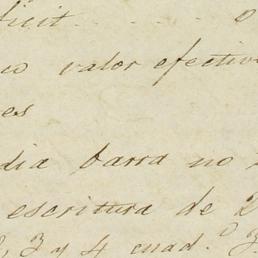 ficit . . . . . 0
no valor efectivo
es
dia barra no
escritura de 2
2, 3 y 4 cuad.º 3